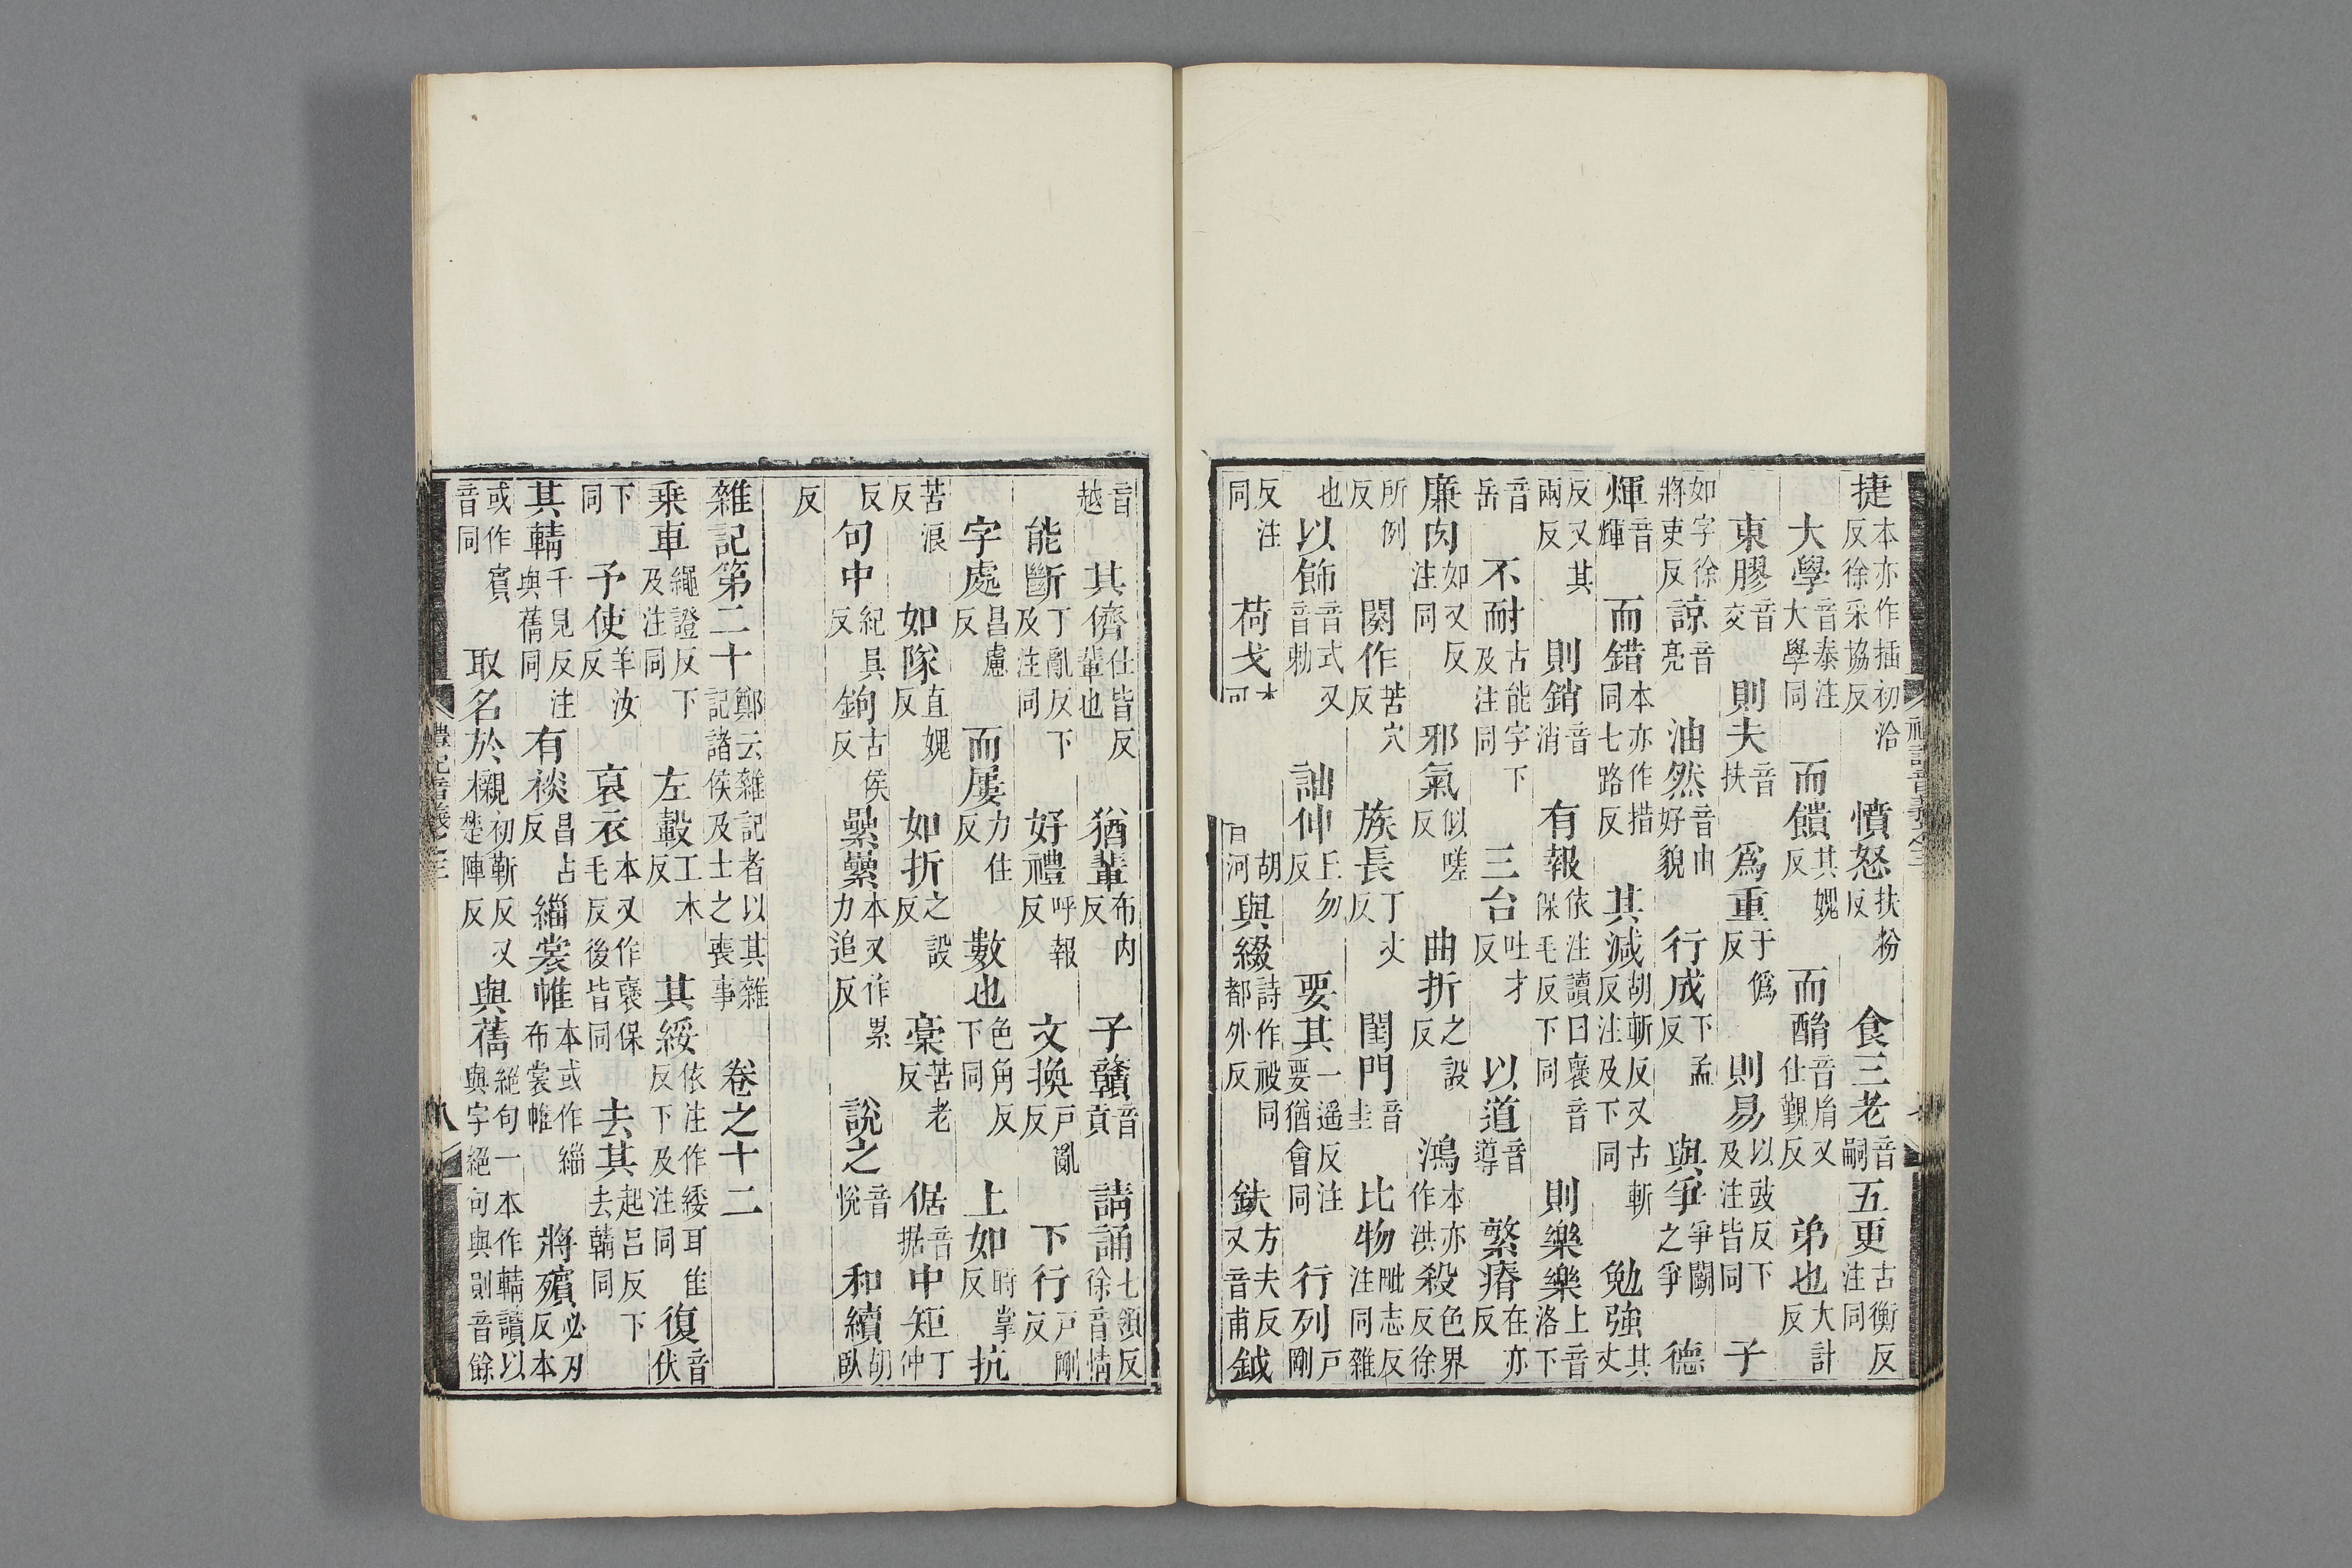 捷本亦作插初洽反徐采協反 憤怒扶粉反 食三老音嗣 五更古衡反注同
大學音泰注大學同 而饋其媿反 而酳音胤又仕覲反 弟也大計反
東膠音交 則夫音扶 爲重于僞反 則易以豉反下及注皆同 子
如字徐將吏反 諒音亮 油然音由好貌 行成下孟反 與爭爭鬪之爭 德
煇音輝 而錯本亦作措同七路反 其減胡斬反又古斬反注及下同 勉強其丈
反又其兩反 則銷音消 有報依注讀曰襃音保毛反下同 則樂樂上音洛下
音岳 不耐古能字下及注同 三台吐才反 以道音導 繁瘠在亦反
廉肉如又反注同 邪氣似嗟反 曲折之設反 鴻本亦作洪 殺色界反徐
所例反 闋作苦穴反 族長丁丈反 閨門音圭 比物毗志反注同雜
也 以飾音式又音勅 詘伸丘勿反 要其一遥反注要猶會同 行列戶剛
反注同 荷戈本胡河 與綴詩作祋同都外反 鈇方夫反又音甫 鉞
音越 其儕仕皆反輩也 猶輩布內反 子贛音貢 請誦七領反徐音情
能斷丁亂反下及注同 好禮呼報反 文換戶亂反 下行戶剛反
字處昌慮反 而屢力住反 數也色角反下同 上如時掌反 抗
苦浪反 如隊直媿反 如折之設反 槀苦老反 倨音据 中矩丁仲
反 句中紀具反 鉤古侯反 纍纍本又作累力追反 說之音悅 和續胡臥
反
雜記第二十鄭云雜記者以其雜記諸侯及士之喪事 卷之十二
乗車繩證反下及注同 左轂工木反 其綏依注作緌耳隹反下及注同 復音伏
下同 予使羊汝反 哀衣本又作襃保毛反後皆同 去其起呂反下去輤同
其輤千見反注與蒨同 有裧昌占反 緇裳帷本或作緇布裳帷 將殯必刃反本
或作賓音同 取名於櫬初靳反又楚陣反 與蒨絕句一本作輤讀以與字絕句與則音餘
禮記音義之三 八